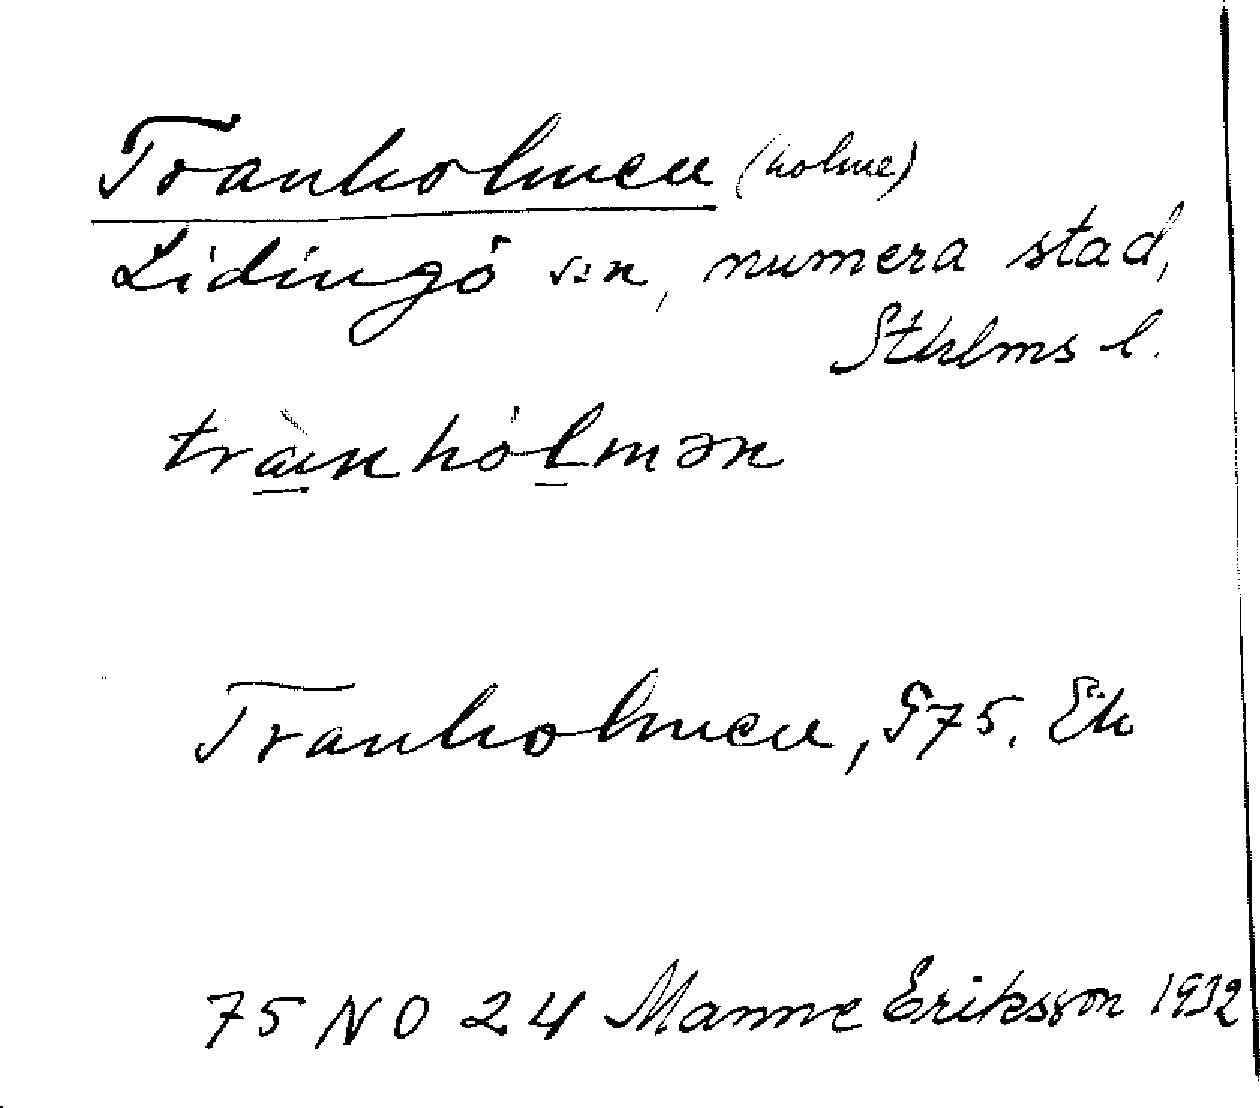 Tranholmen (holme)
Lidingö sn, numera stad,
Sthlms l.
trànhólmən
Tranholmen, G75. Ek
75 NO 24 Manne Eriksson 1932